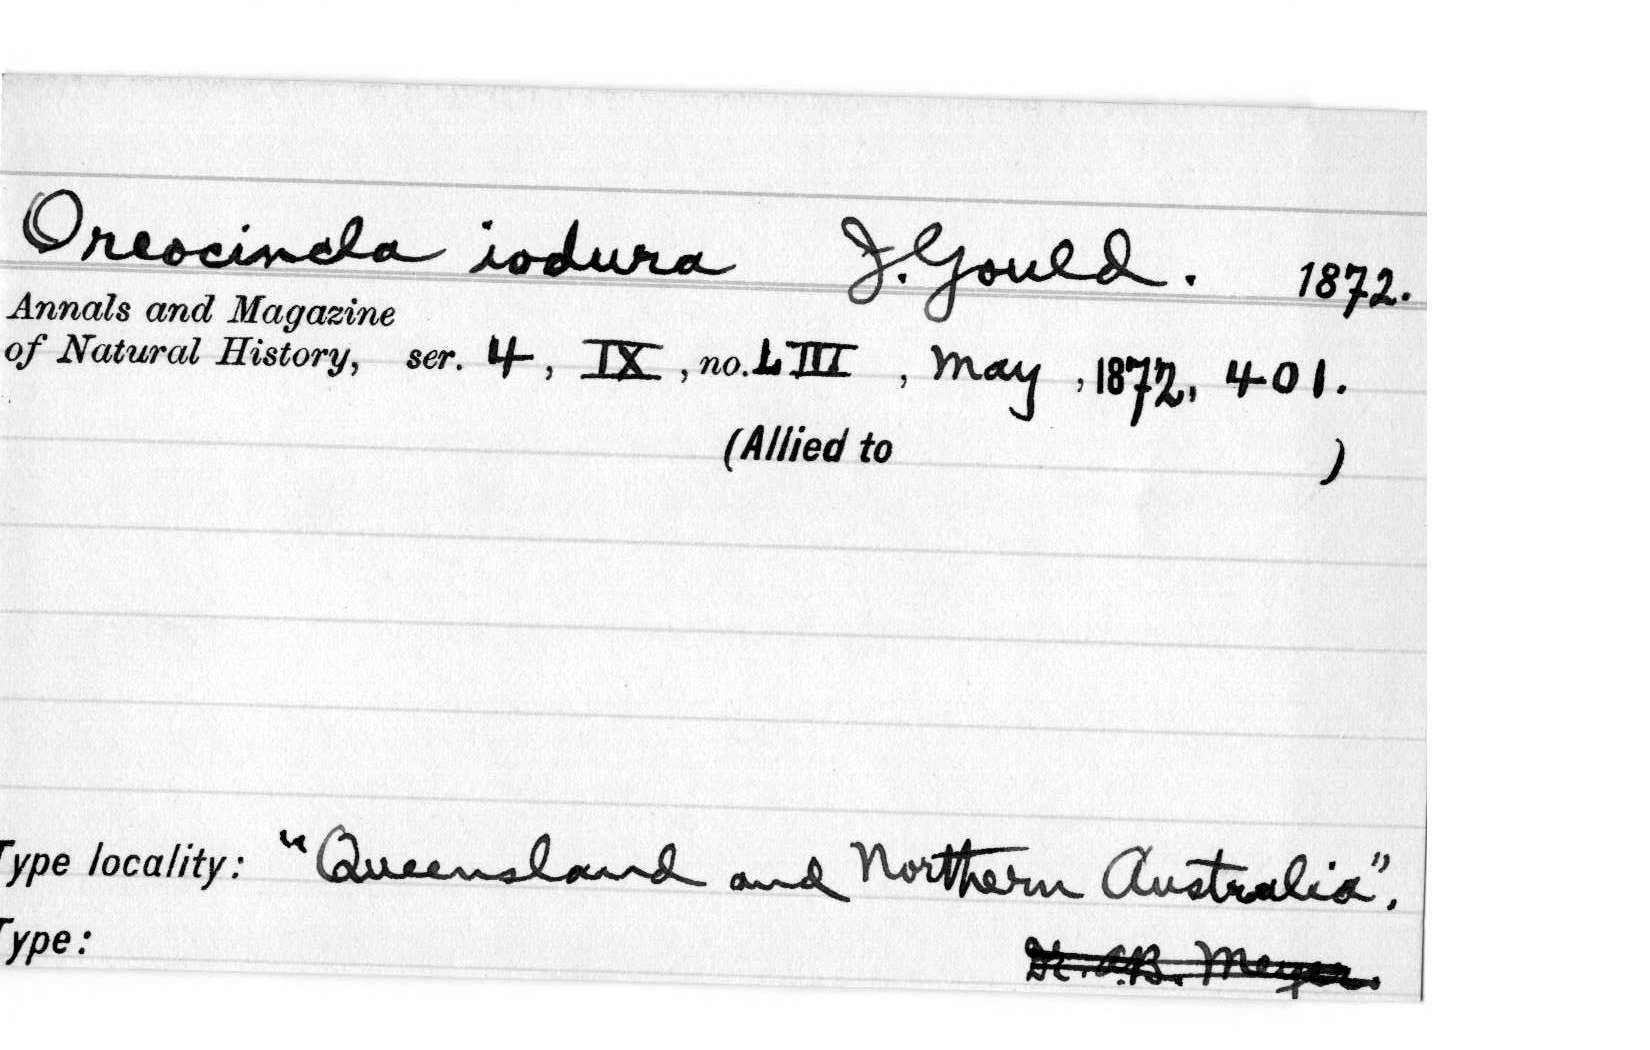 Oreocincla iodura J. Gould. 1872.
Annals and Magazine
of Natural History, ser. 4, IX, no. LIII, May, 1872, 401.
(Allied to )
Type locality: "Queensland and Northern Australia".
Type: Dr. A.B. Meyer.